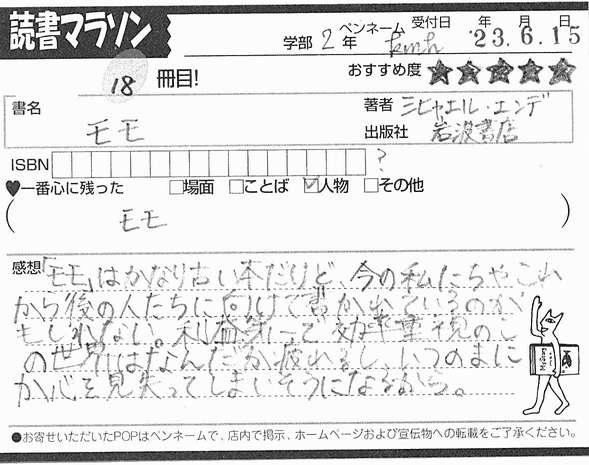 読書マラソン
学部 2年 ペンネーム kmh 受付日 年 月 日 '23.6.15
18 冊目! おすすめ度 ★★★★★
書名 モモ
著者 ミヒャエル・エンデ
出版社 岩波書店
ISBN ?
♥一番心に残った □場面 □ことば ☑人物 □その他
(モモ)
感想 「モモ」はかなり古い本だけど、今の私たちやこれ
から後の人たちに向けて書かれているのか
もしれない。利益第一で効率重視のこ
の世界はなんだか疲れるし、いつのまに
か心を見失ってしまいそうになるから。
Mystery
●お寄せいただいたPOPはペンネームで、店内で掲示、ホームページおよび宣伝物への転載をご了承ください。